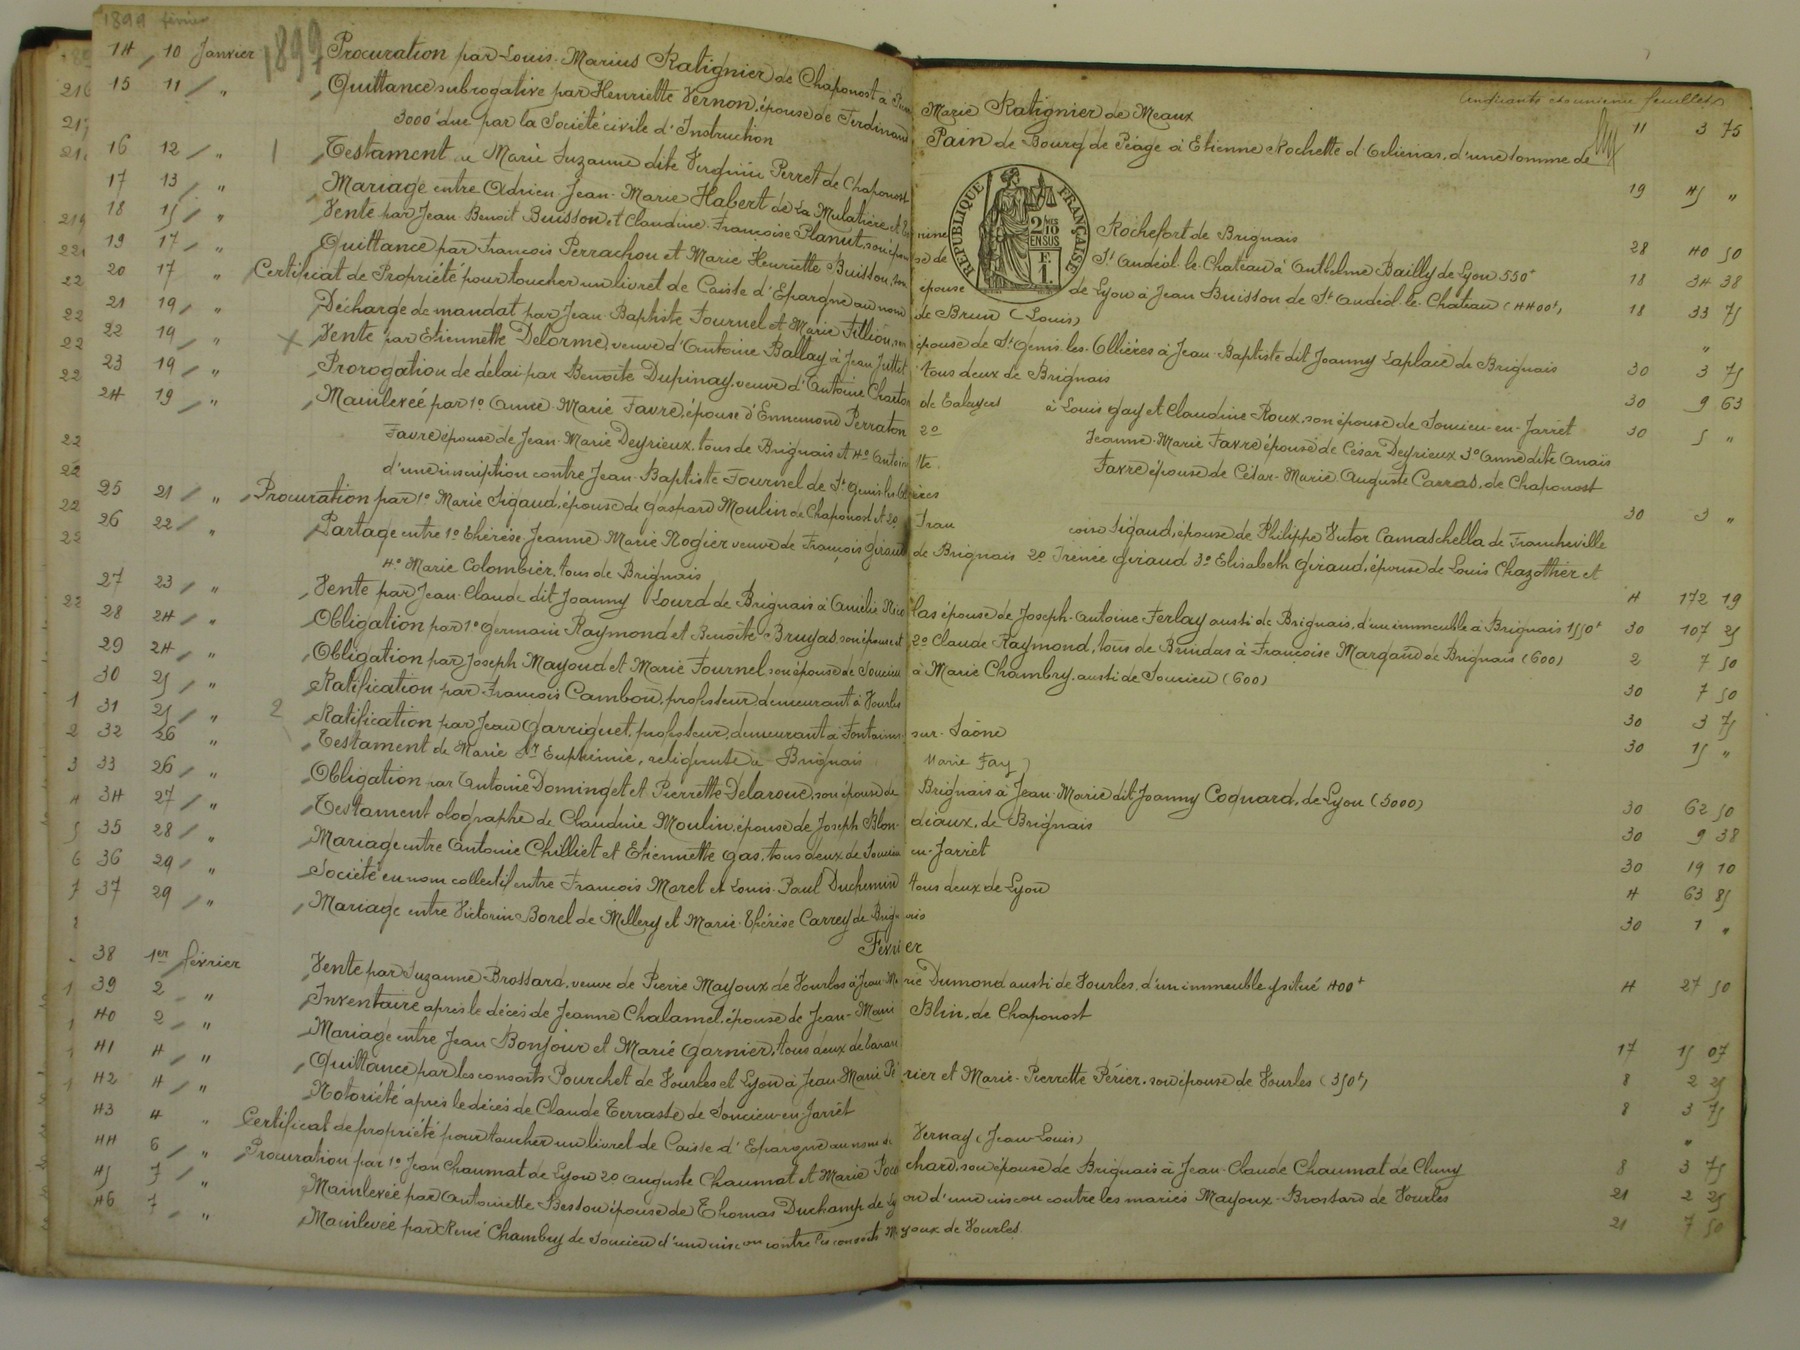 1899 février
14 10 Janvier 1899 Procuration par Louis Marius Ratignier de Chaponost à Marie Ratignier de Meaux 11 3 75
15 11 " Quittance subrogative par Henriette Vernon, épouse de Ferdinand Pain de Bourg de Péage à Etienne Rochette d'Orliénas, d'une somme de
3000f due par la Société civile d'Instruction 19 45 "
16 12 " 1 Testament de Marie Suzanne dite Virginie Perret de Chaponost
17 13 " Mariage entre Adrien Jean-Marie Habert de La Mulatière et Rochefort de Brignais 28 40 50
18 15 " Vente par Jean Benoit Buisson et Claudine Françoise Planut, son épouse de St Andéol-le-Chateau à Anthelme Bailly de Lyon 550f 18 34 38
19 17 " Quittance par François Perrachon et Marie Henriette Buisson, son épouse de Lyon à Jean Buisson de St Andéol-le-Chateau (4400f) 18 33 75
20 17 " Certificat de Propriété pour toucher un livret de Caisse d'Epargne au nom de Brun (Louis) "
21 19 " Décharge de mandat par Jean-Baptiste Fournel et Marie Fillion, son épouse de St Genis-les-Ollières à Jean-Baptiste dit Joanny Laplace de Brignais 30 3 75
22 19 " X Vente par Etiennette Delorme, veuve d'Antoine Ballay à Jean Juttet tous deux de Brignais 30 9 63
23 19 " Prorogation de délai par Benoîte Dupinay, veuve d'Antoine Charton de à Louis Gay et Claudine Roux, son épouse de Soucieu-en-Jarret 30 5 "
24 19 " Mainlevée par 1o Anne-Marie Favre, épouse d'Ennemond Perraton 2o Jeanne-Marie Favre épouse de César Deyrieux 3o Anne dite Anaïs
Favre épouse de Jean-Marie Deyrieux, tous de Brignais et 4o Antoinette Favre épouse de César-Marie Auguste Carras, de Chaponost
d'une inscription contre Jean-Baptiste Fournel de St Genis les Ollières 30 3 "
25 21 " Procuration par 1o Marie Sigaud, épouse de Gaspard Moulin de Chaponost et 2o Françoise Sigaud, épouse de Philippe Victor Camaschella de Francheville
26 22 " Partage entre 1o Thérèse Jeanne Marie Nogier veuve de François Giraud de Brignais 2o Irénée Giraud 3o Elisabeth Giraud, épouse de Louis Chazottier et
4o Marie Colombier, tous de Brignais 4 172 19
27 23 " Vente par Jean-Claude dit Joanny Lourd de Brignais à Amélie Nicolas épouse de Joseph-Antoine Ferlay aussi de Brignais, d'un immeuble à Brignais 1550f 30 107 25
28 24 " Obligation par 1o Germain Raymond et Benoîte Bruyas, son épouse et 2o Claude Raymond, tous de Brindas à Françoise Margand de Brignais (600) 2 7 50
29 24 " Obligation par Joseph Mayoud et Marie Fournel, son épouse de Soucieu à Marie Chambry, aussi de Soucieu (600) 30 7 50
30 25 " Ratification par François Cambon, professeur, demeurant à Vourles 30 3 75
31 25 " Ratification par Jean Garriguet, professeur, demeurant à Fontaines sur-Saône 30 15 "
32 26 " 2 Testament de Marie Sr Euphémie, religieuse à Brignais Marie Fay)
33 26 " Obligation par Antoine Dominget et Pierrette Delaroue, son épouse de Brignais à Jean-Marie dit Joanny Coquard, de Lyon (5000) 30 62 50
34 27 " Testament olographe de Claudine Moulin, épouse de Joseph Blondiaux, de Brignais 30 9 38
35 28 " Mariage entre Antoine Chilliet et Etiennette Gas, tous deux de Soucieu en-Jarret 30 19 10
36 29 " Société en nom collectif entre François Moret et Louis-Paul Duchemin tous deux de Lyon 4 63 85
37 29 " Mariage entre Victorin Borel de Millery et Marie-Thérèse Carrey de Brignais 30 1 "
Février
38 1er février Vente par Suzanne Brossard, veuve de Pierre Mayoux de Vourles à Jean-Marie Dumond aussi de Vourles, d'un immeuble y situé 400f 4 27 50
39 2 " Inventaire après le décès de Jeanne Chalamel, épouse de Jean-Marie Blin, de Chaponost
40 2 " Mariage entre Jean Bonjour et Marie Garnier, tous deux de 17 15 07
41 4 " Quittance par les consorts Pourchet de Vourles et Lyon à Jean-Marie Périer et Marie-Pierrette Périer, son épouse de Vourles (350f) 8 2 25
42 4 " Notoriété après le décès de Claude Terrasse de Soucieu-en-Jarret 8 3 75
43 4 " Certificat de propriété pour toucher un livret de Caisse d'Epargne au nom de Vernay (Jean-Louis) "
44 6 " Procuration par 1o Jean Chaumat de Lyon 2o Auguste Chaumat et Marie Pochard, son épouse de Brignais à Jean-Claude Chaumat de Cluny 8 3 75
45 7 " Mainlevée par Antoinette Besson épouse de Thomas Duchamp de Lyon d'une inscon contre les mariés Mayoux-Brossard de Vourles 21 2 25
46 7 " Mainlevée par René Chambry de Soucieu d'une inscon contre les consorts Mayoux de Vourles 21 7 50
REPUBLIQUE FRANÇAISE
2/10
EN SUS